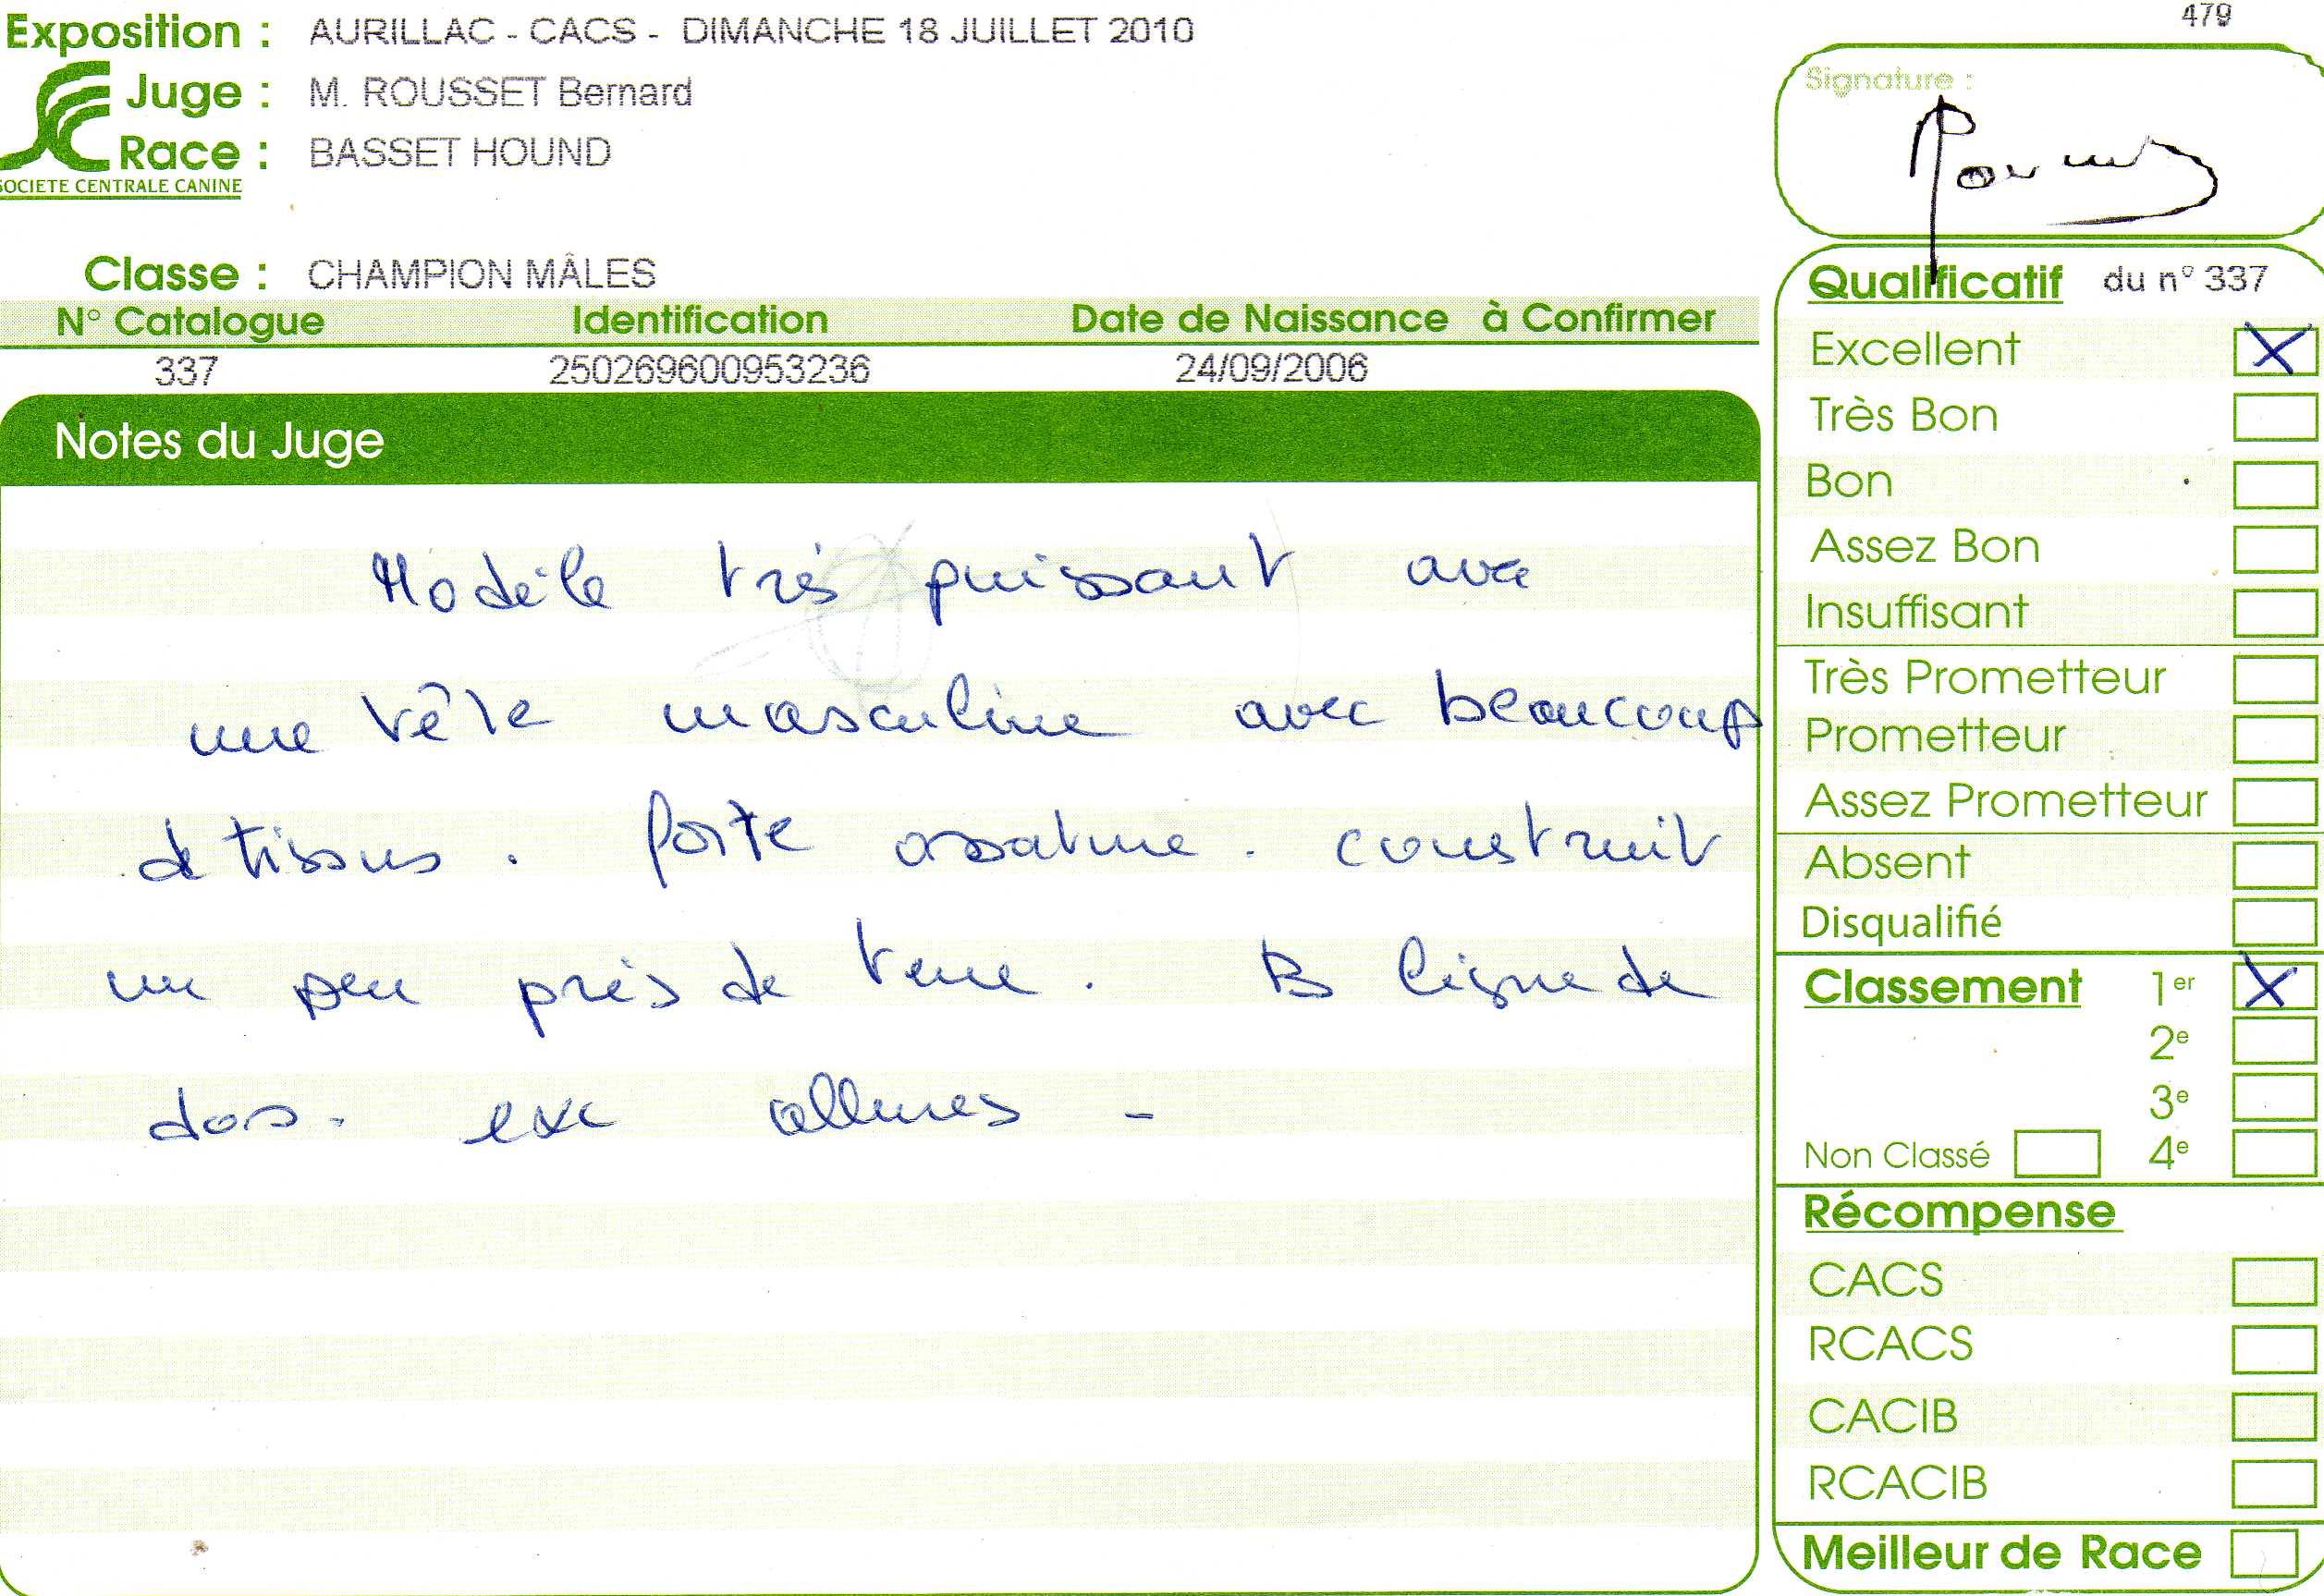 479
Exposition : AURILLAC - CACS - DIMANCHE 18 JUILLET 2010
Juge : M. ROUSSET Bernard
Race : BASSET HOUND
SOCIETE CENTRALE CANINE
Classe : CHAMPION MÂLES
N° Catalogue Identification Date de Naissance à Confirmer
337 250269600953236 24/09/2006
Notes du Juge
Modèle très puissant avec
une tête masculine avec beaucoup
de tissus. forte ossature. construit
un peu près de terre. B ligne de
dos. exc allures -
Signature :
Qualificatif du n° 337
Excellent X
Très Bon
Bon
Assez Bon
Insuffisant
Très Prometteur
Prometteur
Assez Prometteur
Absent
Disqualifié
Classement 1er X
2e
3e
Non Classé 4e
Récompense
CACS
RCACS
CACIB
RCACIB
Meilleur de Race